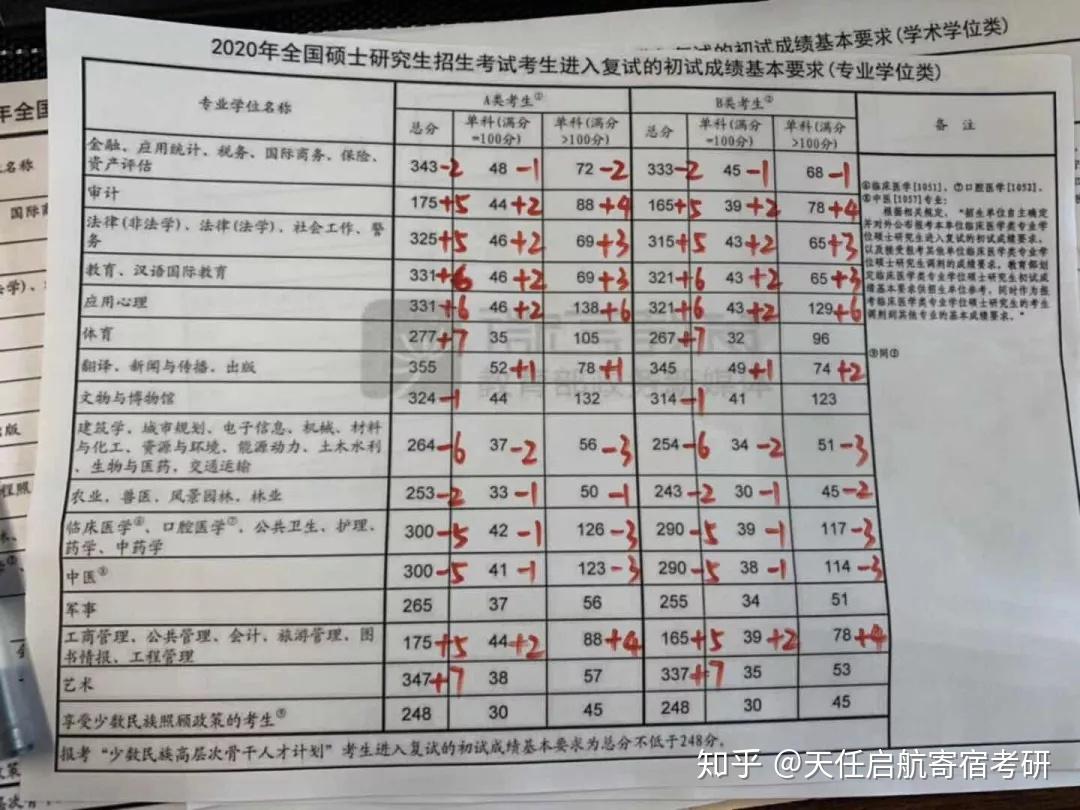 复试的初试成绩基本要求(学术学位类)
2020年全国硕士研究生招生考试考生进入复试的初试成绩基本要求(专业学位类)
年全国
专业学位名称 A类考生① B类考生② 备 注
总分 单科(满分=100分) 单科(满分>100分) 总分 单科(满分=100分) 单科(满分>100分)
金融、应用统计、税务、国际商务、保险、
资产评估 343 -2 48 -1 72 -2 333 -2 45 -1 68 -1
审计 175 +5 44 +2 88 +4 165 +5 39 +2 78 +4
法律(非法学)、法律(法学)、社会工作、警
务 325 +5 46 +2 69 +3 315 +5 43 +2 65 +3
教育、汉语国际教育 331 +6 46 +2 69 +3 321 +6 43 +2 65 +3
应用心理 331 +6 46 +2 138 +6 321 +6 43 +2 129 +6
体育 277 +7 35 105 267 +7 32 96
翻译、新闻与传播、出版 355 52 +1 78 +1 345 49 +1 74 +2
文物与博物馆 324 -1 44 132 314 -1 41 123
建筑学、城市规划、电子信息、机械、材料
与化工、资源与环境、能源动力、土木水利
、生物与医药、交通运输 264 -6 37 -2 56 -3 254 -6 34 -2 51 -3
农业、兽医、风景园林、林业 253 -2 33 -1 50 -1 243 -2 30 -1 45 -2
临床医学⑥、口腔医学⑦、公共卫生、护理、
药学、中药学 300 -5 42 -1 126 -3 290 -5 39 -1 117 -3
中医⑧ 300 -5 41 -1 123 -3 290 -5 38 -1 114 -3
军事 265 37 56 255 34 51
工商管理、公共管理、会计、旅游管理、图
书情报、工程管理 175 +5 44 +2 88 +4 165 +5 39 +2 78 +4
艺术 347 +7 38 57 337 +7 35 53
享受少数民族照顾政策的考生⑨ 248 30 45 248 30 45
报考“少数民族高层次骨干人才计划”考生进入复试的初试成绩基本要求为总分不低于248分。
⑥临床医学[1051]、⑦口腔医学[1052]、
⑧中医[1057]专业:
根据相关规定,“招生单位自主确定
并对外公布报考本单位临床医学类专业学
位硕士研究生进入复试的初试成绩要求,
以及接受报考其他单位临床医学类专业学
位硕士研究生调剂的成绩要求。教育部划
定临床医学类专业学位硕士研究生初试成
绩基本要求供招生单位参考,同时作为报
考临床医学类专业学位硕士研究生的考生
调剂到其他专业的基本成绩要求。”
教育部政务新媒体
知乎 @天任启航寄宿考研